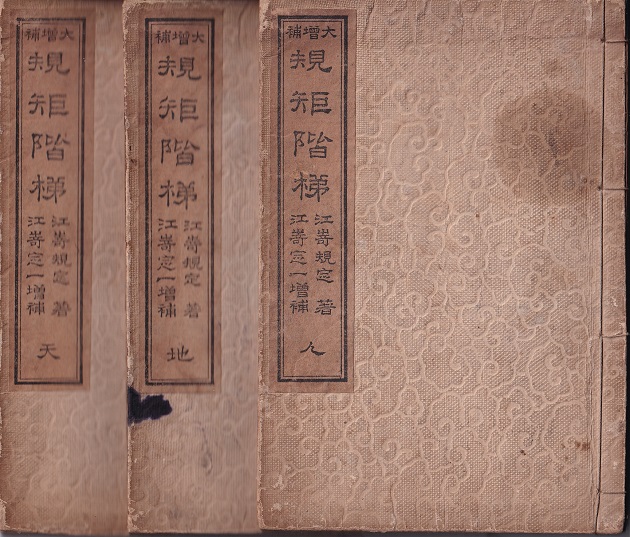 大增補
規矩階梯
江嵜規定 著
江嵜定一增補
天
大增補
規矩階梯
江嵜規定 著
江嵜定一增補
地
大增補
規矩階梯
江嵜規定 著
江嵜定一增補
人